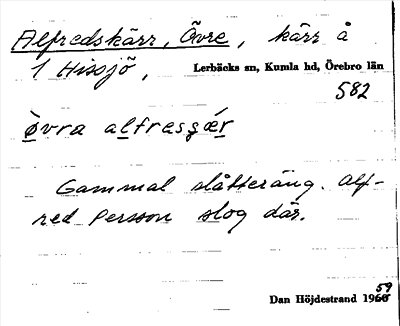 Alfredskärr, Övre, kärr å
1 Hissjö, Lerbäcks sn, Kumla hd, Örebro län
582
òvra alfresşær
Gammal slåtteräng. Alf-
red Persson slog där.
Dan Höjdestrand 1959